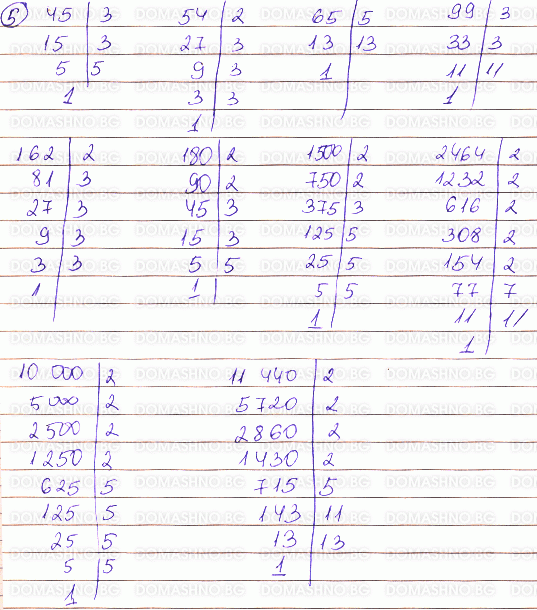 5
45 | 3
15 | 3
5 | 5
1
54 | 2
27 | 3
9 | 3
3 | 3
1
65 | 5
13 | 13
1
99 | 3
33 | 3
11 | 11
1
162 | 2
81 | 3
27 | 3
9 | 3
3 | 3
1
180 | 2
90 | 2
45 | 3
15 | 3
5 | 5
1
1500 | 2
750 | 2
375 | 3
125 | 5
25 | 5
5 | 5
1
2464 | 2
1232 | 2
616 | 2
308 | 2
154 | 2
77 | 7
11 | 11
1
10 000 | 2
5000 | 2
2500 | 2
1250 | 2
625 | 5
125 | 5
25 | 5
5 | 5
1
11 440 | 2
5720 | 2
2860 | 2
1430 | 2
715 | 5
143 | 11
13 | 13
1
DOMASHNO.BG